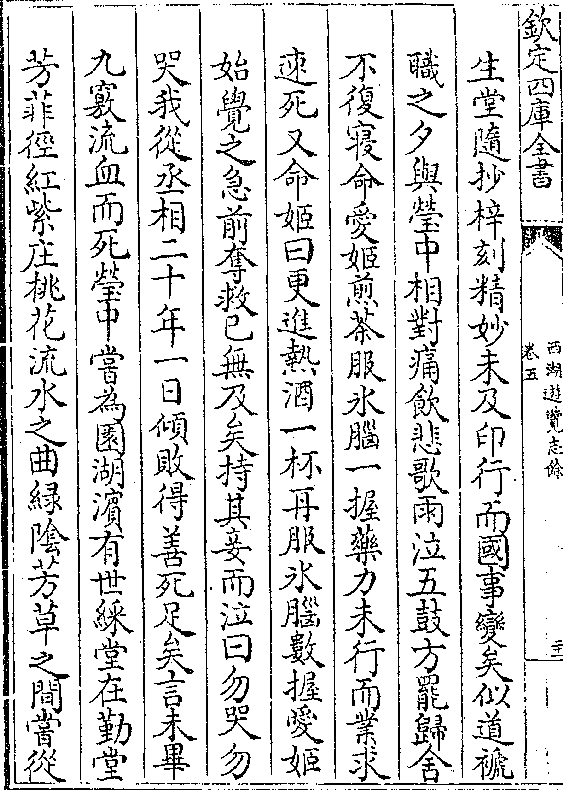 欽定四庫全書
西湖遊覽志餘
卷五
生堂隨抄梓刻精妙未及印行而國事變矣似道褫
職之夕與瑩中相對痛飲悲歌雨泣五鼓方罷歸舍
不復寢命愛姬煎茶服氷腦一握藥力未行而業求
速死又命姬曰更進熱酒一杯再服氷腦數握愛姬
始覺之急前奪救已無及矣持其妾而泣曰勿哭勿
哭我從丞相二十年一日傾敗得善死足矣言未畢
九竅流血而死瑩中嘗為園湖濵有世綵堂在勤堂
芳菲徑紅紫庄桃花流水之曲緑陰芳草之間嘗從